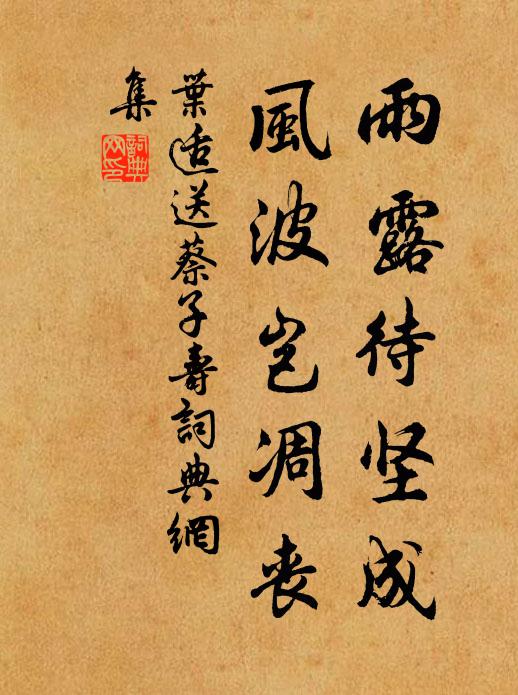 雨露待坚成
風波岂凋丧
葉适送蔡子壽詞典網
集
詞典
网印